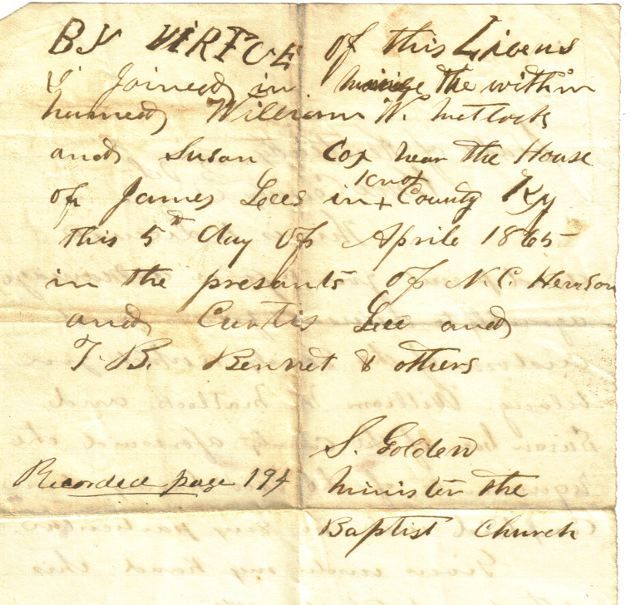 BY VIRTUE of this Licens
I Joined in the within
named William W. Metlock
and Susan Cox near the House
Knox
of James Lees in + County Ky
this 5th day of Aprile 1865
in the presants of N. C. Henson
and Curtis Lee and
T. B. Bennet & others
S. Golden
Recorded page 194 minister the
Baptist Church